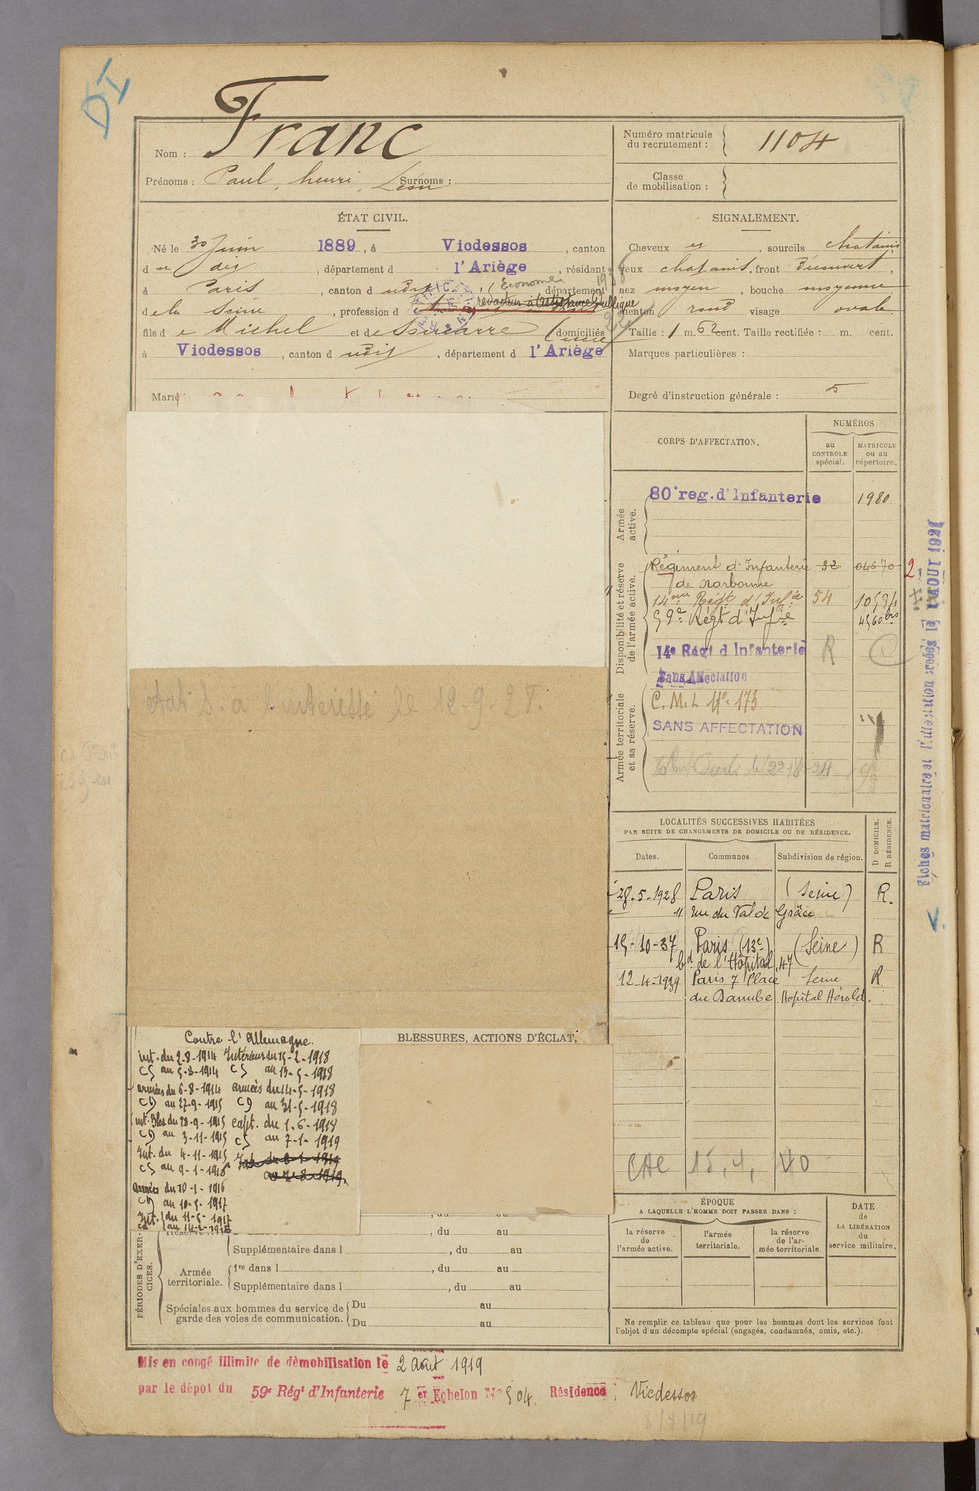 DI
Nom : Franc
Prénoms : Paul, henri, Léon Surnoms :
Numéro matricule
du recrutement : 1104
Classe
de mobilisation :
ÉTAT CIVIL.
Né le 30 Juin 1889, à Vicdessos, canton
du dit, département d l'Ariège, résidant
à Paris, canton d udit, département
Économe
de la Seine, profession d rédacteur à l'Assistance Publique
fils de Michel et de domiciliés
à Vicdessos, canton d udit, département d l'Ariège
Marié
SIGNALEMENT.
Cheveux et, sourcils chatains
yeux chatains, front
nez moyen, bouche moyenne
menton rond visage ovale
Taille : 1 m. 62 cent. Taille rectifiée : m. cent.
Marques particulières :
Degré d'instruction générale : 5
CORPS D'AFFECTATION.
NUMÉROS
au
CONTROLE
spécial.
MATRICULE
ou au
répertoire.
Armée
active.
80e reg. d'Infanterie 1980
Disponibilité et réserve
de l'armée active.
Régiment d'Infanterie 32 04670
de Narbonne
14eme Régt d'Infie 54
59e Régt d'Infie 4560 bis
14e Régt d Infanterie R
Sans Affectation
Armée territoriale
et sa réserve.
C. M. I. No 173
SANS AFFECTATION
Fiches matricule et l'affectation créés le AOUT 1921
état S. a l'intéressé le 12-9-2
LOCALITÉS SUCCESSIVES HABITÉES
PAR SUITE DE CHANGEMENTS DE DOMICILE OU DE RÉSIDENCE.
Dates.
Communes
Subdivision de région.
D DOMICILE.
R RÉSIDENCE.
28-5-1928 Paris (Seine) R.
11 rue du Val de Grâce
15-10-37 Paris (13e) (Seine) R
bd de l'Hôpital, 47
12-4-1939 Paris 7 Place Seine R
du Danube Hopital Hérold.
CAC 15, 4, 40
Contre l'Allemagne.
Int. du 2-8-1914
CS au 5-8-1914
armées du 6-8-1914
CD au 27-9-1915
int. Bles du 28-9-1915
CD au 3-11-1915
Int. du 4-11-1915
CS au 9-1-1916
armées du 10-1-1916
CD au 10-5-1917
Int. du 11-5-1917
au 14-2-1918
Intérieur du 15-2-1918
CS au 13-5-1918
armées du 14-5-1918
CD au 31-5-1918
capt. du 1-6-1918
CS au 7-1-1919
Int. du 8-1-1919
BLESSURES, ACTIONS D'ÉCLAT,
PÉRIODES D'EXER-
CICES.
, du au
Réserve , du au
Supplémentaire dans l , du au
Armée
territoriale.
1re dans l , du au
Supplémentaire dans l , du au
Spéciales aux hommes du service de
garde des voies de communication.
Du au
Du au
ÉPOQUE
A LAQUELLE L'HOMME DOIT PASSER DANS :
la réserve
de
l'armée active.
l'armée
territoriale.
la réserve
de l'ar-
mée territoriale.
DATE
de
LA LIBÉRATION
du
service militaire.
Ne remplir ce tableau que pour les hommes dont les services font
l'objet d'un décompte spécial (engagés, condamnés, omis, etc.).
Mis en congé illimité de démobilisation le 2 Août 1919
par le dépôt du 59e Régt d'Infanterie 7 er Echelon No 504. Résidence : Vicdessos
8/8/19